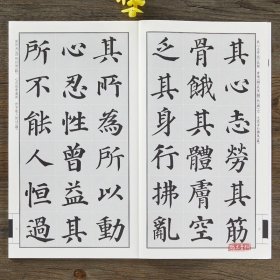 其心志勞其筋
骨餓其體膚空
乏其身行拂亂
其所為所以動
心忍性曾益其
所不能人恒過